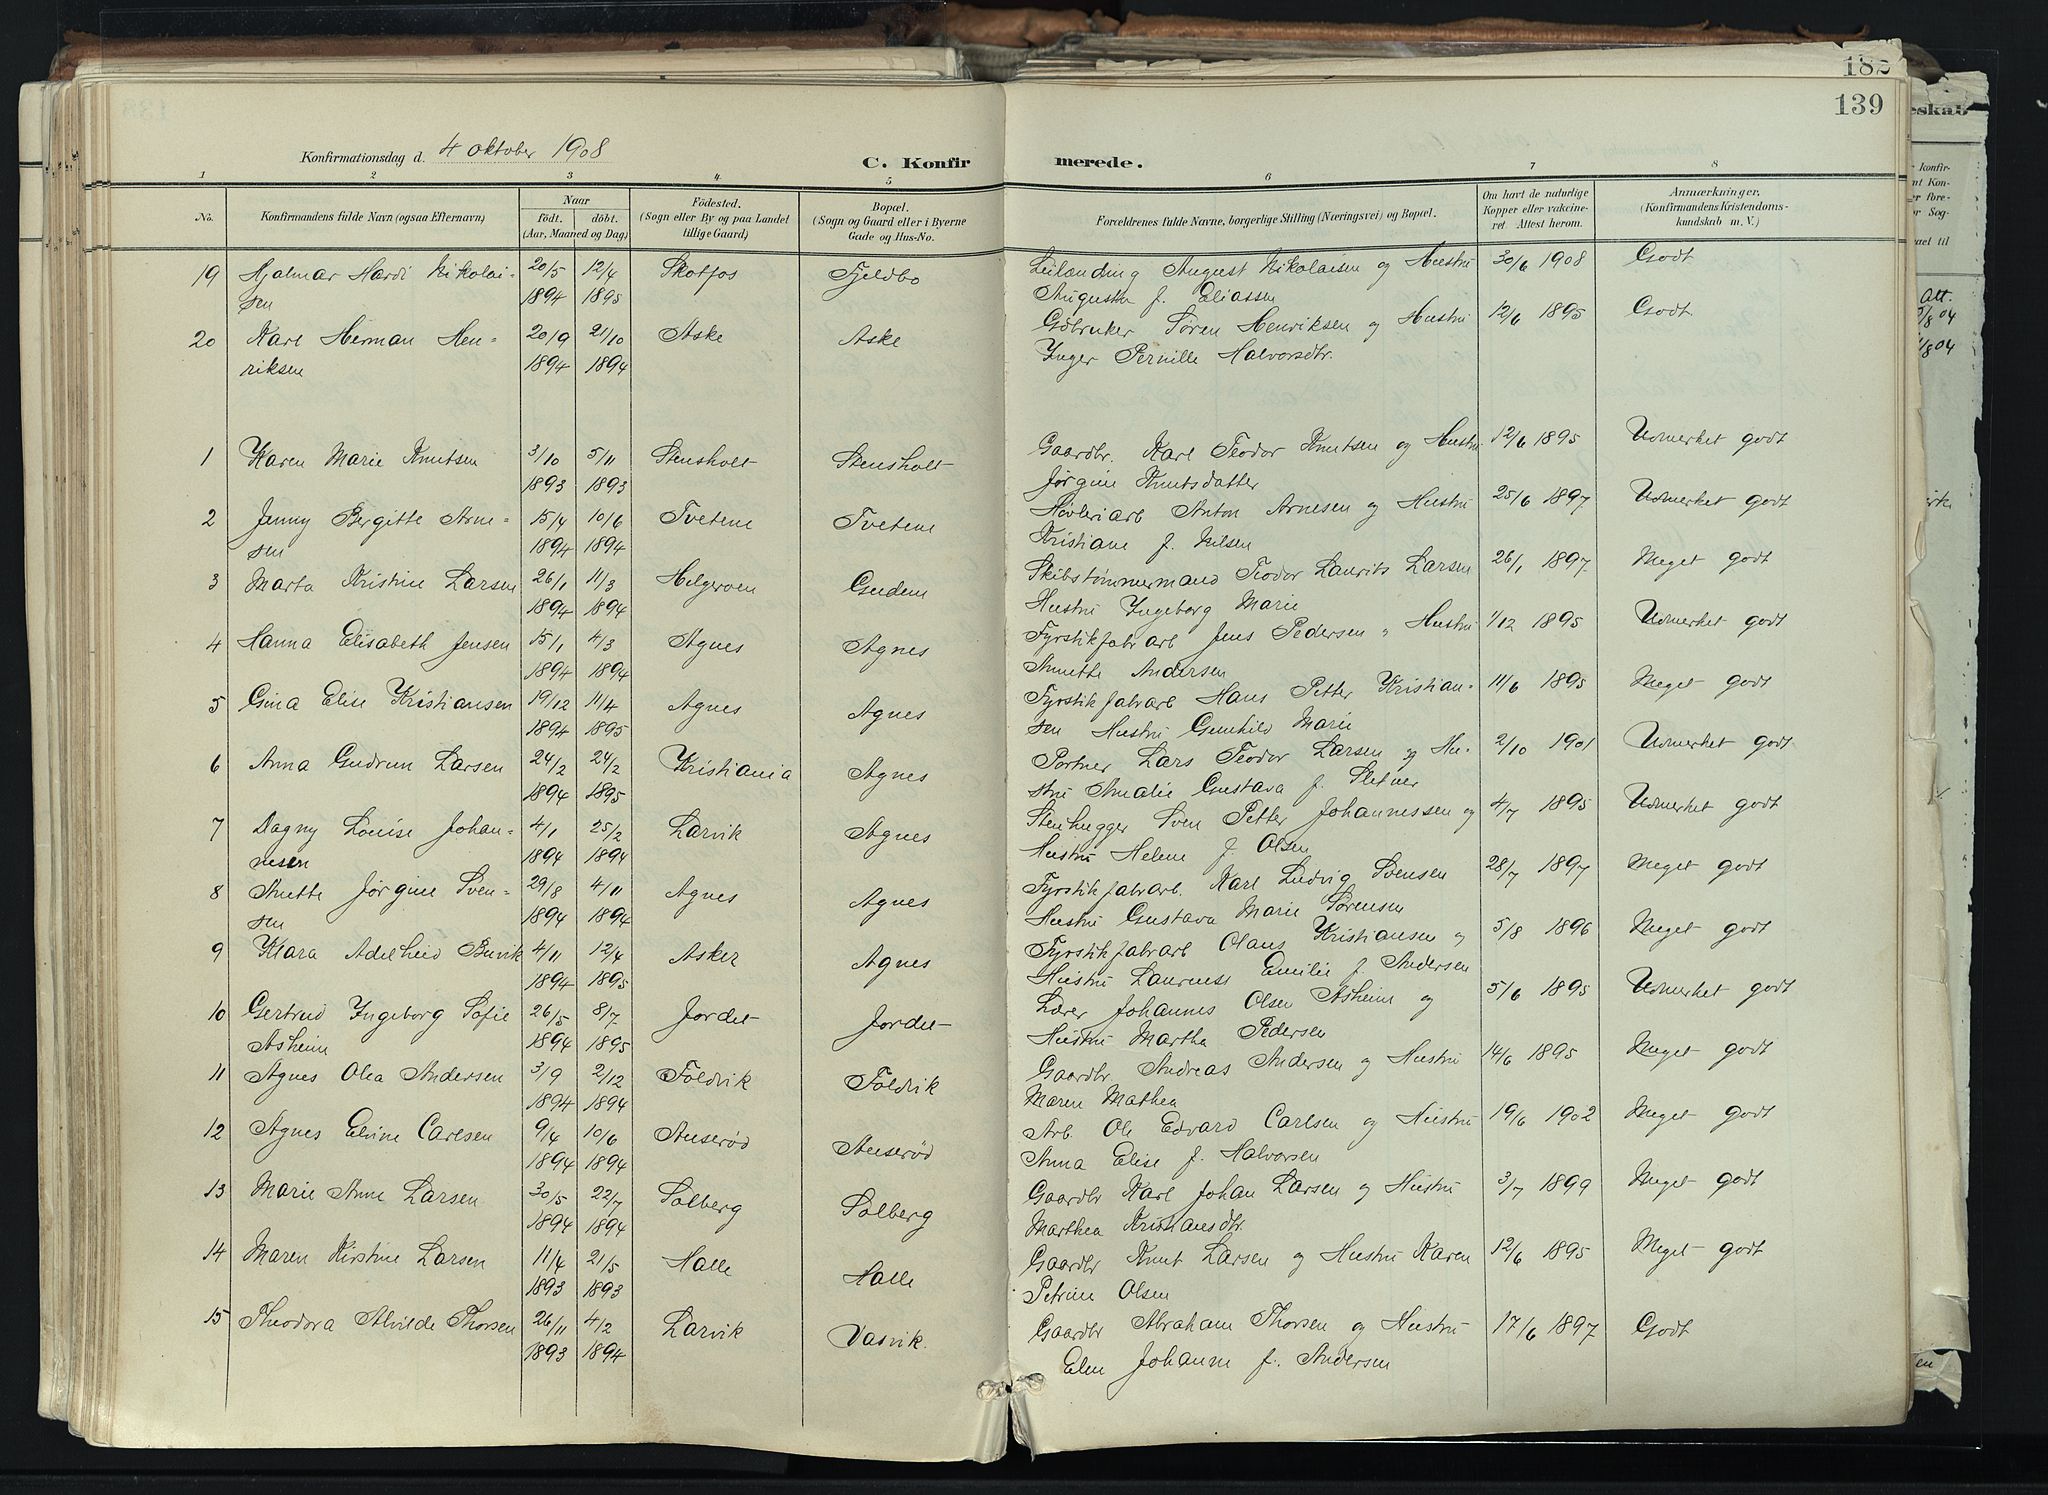 182
139
Konfirmationsdag d. 4 oktober 1908
C. Konfirmerede.
1 2 3 4 5 6 7 8
No.
Konfirmandens fulde Navn (ogsaa Efternavn)
Naar
født. døbt.
(Aar, Maaned og Dag)
Fødested.
(Sogn eller By og paa Landet
tillige Gaard)
Bopæl.
(Sogn og Gaard eller i Byerne
Gade og Hus-No.
Forældrenes fulde Navne, borgerlige Stilling (Næringsvei) og Bopæl.
Om havt de naturlige
Kopper eller vakcine-
ret. Attest herom.
Anmærkninger.
(Konfirmandens Kristendoms-
kundskab m. V.)
19 Hjalmar Hardi Nikolai- 20/5 12/4 Skotfos Fjeldbo Leilænding August Nikolaisen og Hustru 30/6 1908 Godt
sen 1894 1895 Augusta f. Eliassen
20 Karl Herman Hen- 20/9 21/10 Aske Aske Gdbruker Søren Henriksen og Hustru 12/6 1895 Godt
riksen 1894 1894 Inger Pernille Halvorsdtr.
1 Karen Marie Knutsen 3/10 5/11 Stensholt Stensholt Gaardbr. Karl Teodor Knutsen og Hustru 12/6 1895 Udmerket godt
1893 1893 Jørgine Knutsdatter
2 Jenny Bergitte Arne- 15/4 10/6 Tvetene Tvetene Høvleriarb Anton Arnesen og Hustru 25/6 1897 Udmerket godt
sen 1894 1894 Kristiane f. Nilsen
3 Marta Kristine Larsen 26/1 11/3 Helgeroen Gudem Skibstømmermand Teodor Laurits Larsen 26/1 1897 Meget godt
1894 1894 Hustru Ingeborg Marie
4 Hanna Elisabeth Jensen 15/1 4/3 Agnes Agnes Fyrstikfabrarb Jens Pedersen " Hustru 1/12 1895 Udmerket godt
1894 1894 Annette Andersen
5 Gina Elise Kristiansen 19/12 11/4 Agnes Agnes Fyrstikfabrarb Hans Petter Kristian- 11/6 1895 Meget godt
1894 1895 sen Hustru Gunhild Marie
6 Anna Gudrun Larsen 24/2 24/2 Kristiania Agnes Portner Lars Teodor Larsen og Hu- 2/10 1901 Udmerket godt
1894 1895 stru Amalie Gustava f. Sletner
7 Dagny Louise Johan- 4/1 25/2 Larvik Agnes Stenhugger Sven Petter Johannessen og 4/7 1895 Udmerket godt
nesen 1894 1894 Hustru Helene f. Olsen
8 Anette Jørgine Sven- 29/8 4/11 Agnes Agnes Fyrstikfabrarb. Karl Ludvig Svensen 28/7 1897 Meget godt
sen 1894 1894 Hustru Gustava Marie Sørensen
9 Klara Adelheid Buvik 4/11 12/4 Asker Agnes Fyrstikfabrarb Olaus Kristiansen og 5/8 1896 Meget godt
1894 1895 Hustru Laurense Emilie f. Andersen
10 Gertrud Ingeborg Sofie 26/5 8/7 Jordet Jordet Lærer Johannes Olsen Asheim og 5/6 1895 Udmerket godt
Asheim 1894 1895 Hustru Martha Pedersen
11 Agnes Olea Andersen 3/9 2/12 Foldvik Foldvik Gaardbr Andreas Andersen og Hustru 14/6 1895 Meget godt
1894 1894 Maren Mathea
12 Agnes Elvine Carlsen 9/4 10/6 Auserød Auserød Arb. Ole Edvard Carlsen og Hustru 19/6 1902 Meget godt
1894 1894 Anna Elise f. Halvorsen
13 Marie Anne Larsen 30/5 22/7 Solberg Solberg Gaardbr Karl Johan Larsen og Hustru 3/7 1899 Meget godt
1894 1894 Marthea Kristiansdtr.
14 Maren Kirstine Larsen 11/4 21/5 Halle Halle Gaardbr Knut Larsen og Hustru Karen 12/6 1895 Meget godt
1893 1893 Petrine Olsen
15 Theodora Alvilde Thorsen 26/11 4/2 Larvik Vasvik. Gaardbr Abraham Thorsen og Hustru 17/6 1897 Godt
1893 1894 Elen Johanne f. Andersen